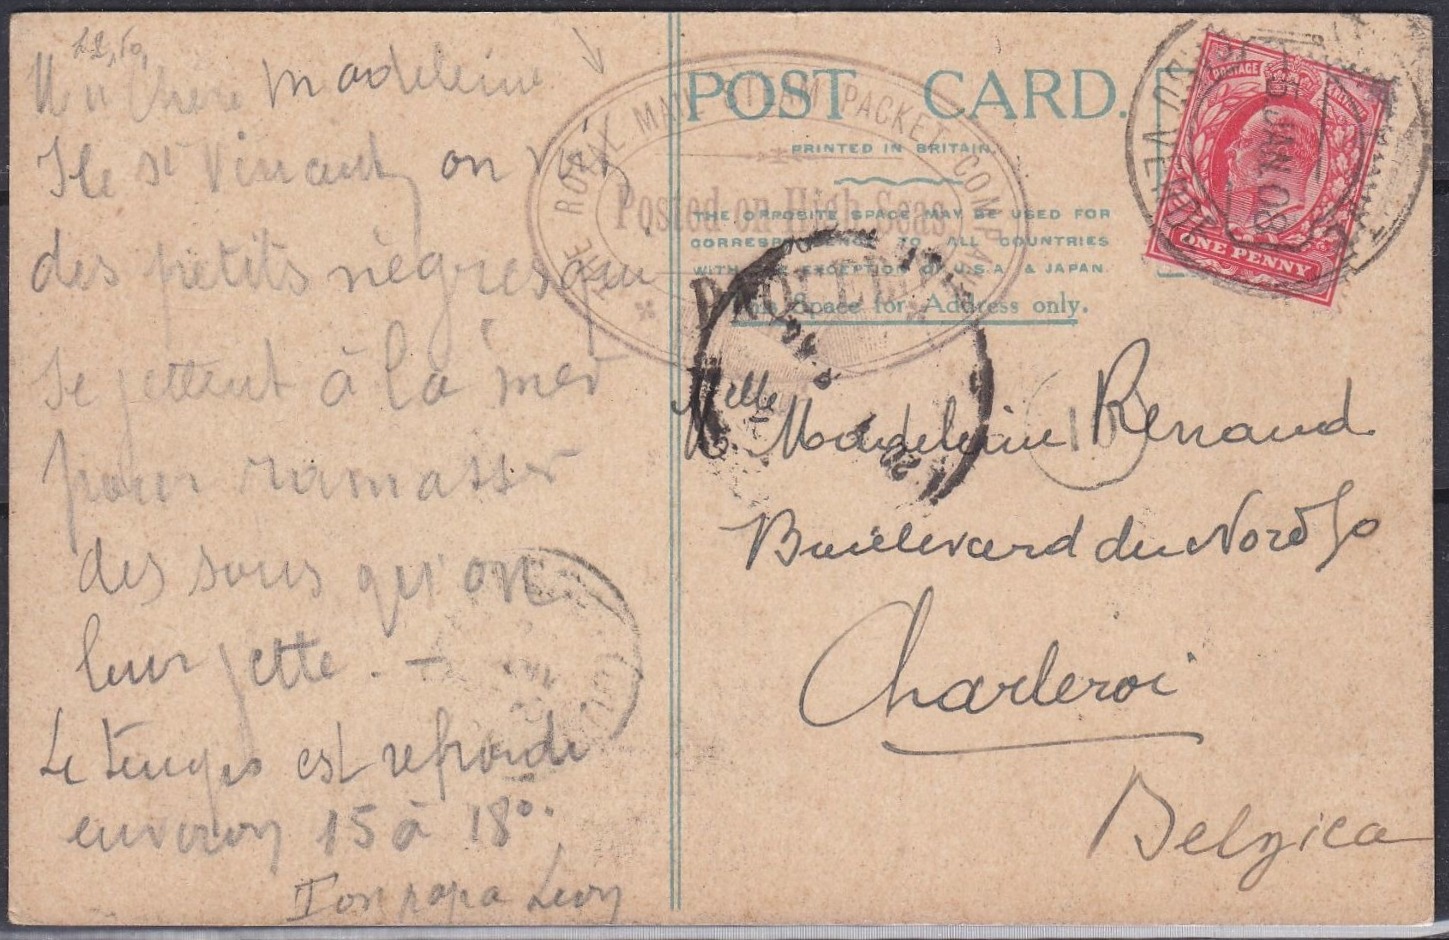 Ma Chère Madeleine
Ile St Vincent, on voit
des petits nègres qui
se jettent à la mer
pour ramasser
des sous qu'on
leur jette. -
Le temps est refroidi
environ 15 à 18°.
Ton papa Léon
POST CARD.
PRINTED IN BRITAIN.
THE OPPOSITE SPACE MAY BE USED FOR
CORRESPONDENCE TO ALL COUNTRIES
WITH THE EXCEPTION OF U.S.A. & JAPAN.
This Space for Address only.
THE ROYAL MAIL STEAM PACKET COMPANY
Posted on High Seas.
PAQUEBOT
POSTAGE REVENUE
ONE PENNY
JAN. 08
Melle Madeleine Renaud
Boulevard du Nord 50
Charleroi
Belgica